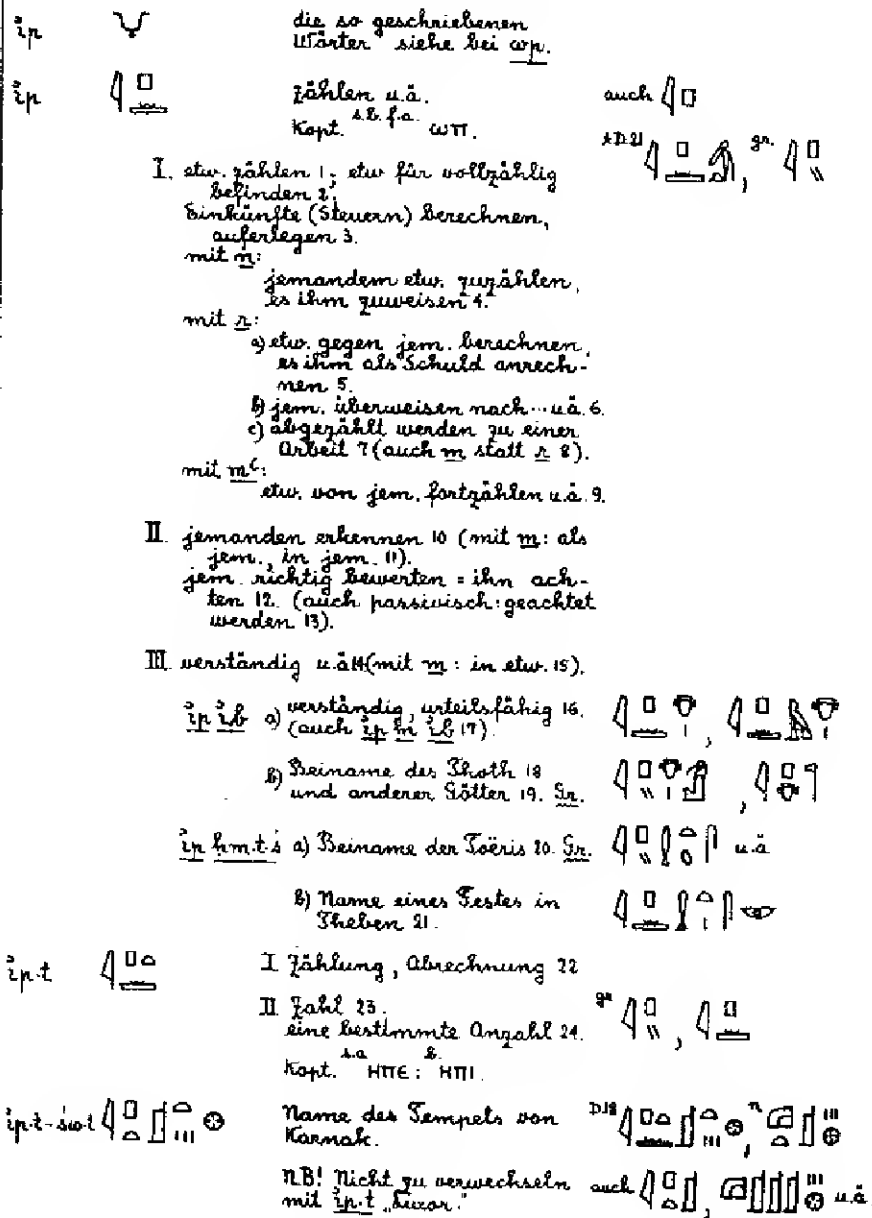 ỉp 𓄋 die so geschriebenen
Wörter siehe bei wp.
ỉp 𓇋𓊪𓏛 zählen u.ä. auch 𓇋𓊪
Kopt. s.b. f.a. ⲱⲡ. gr.
I. etw. zählen 1; etw für vollzählig
befinden 2;
Einkünfte (Steuern) berechnen,
auferlegen 3.
mit n:
jemandem etw. zuzählen,
es ihm zuweisen 4.
mit r:
a) etw. gegen jem. berechnen,
es ihm als Schuld anrech-
nen 5.
b) jem. überweisen nach... u.ä. 6.
c) abgezählt werden zu einer
Arbeit 7 (auch m statt r 8).
mit mꜥ:
etw. von jem. fortzählen u.ä. 9.
II. jemanden erkennen 10 (mit m: als
jem., in jem. 11).
jem. richtig bewerten = ihn ach-
ten 12. (auch passivisch: geachtet
werden 13).
III. verständig u.ä 14 (mit m: in etw. 15).
ỉp ỉb a) verständig, urteilsfähig 16.
(auch ỉp m ỉb 17).
b) Beiname des Thoth 18
und anderer Götter 19. Gr.
ỉp ḥm.t.ś a) Beiname der Toëris 20. Gr. u.ä
b) Name eines Festes in
Theben 21.
ỉp.t 𓇋𓊪𓏏 I Zählung, Abrechnung 22
II Zahl 23.
eine bestimmte Anzahl 24. gr
Kopt. s.a ⲏⲡⲉ: b. ⲏⲡⲓ.
ỉp.t-św.t Name des Tempels von D.18
Karnak.
NB! Nicht zu verwechseln auch u.ä
mit ỉp.t „Luxor."